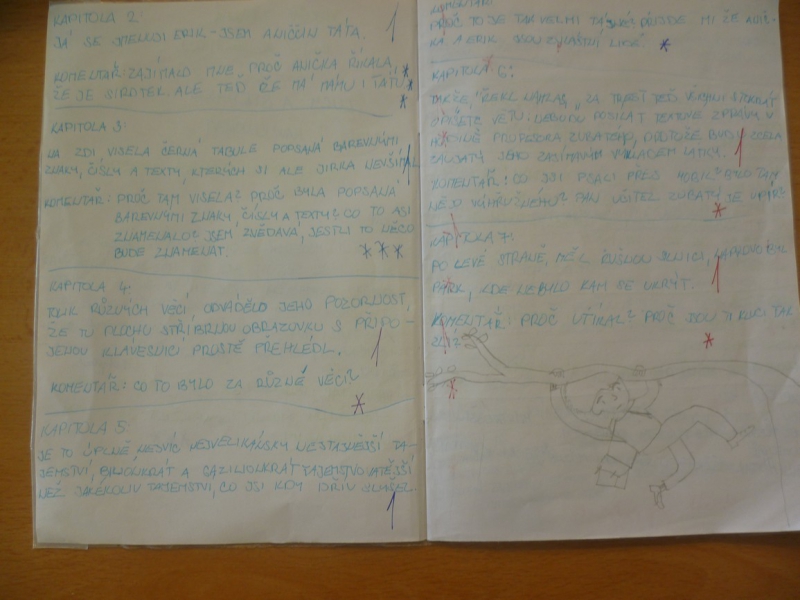 KAPITOLA 2
JÁ SE JMENUJI ERIK - JSEM ANIČČIN TÁTA. 1
KOMENTÁŘ: ZAJÍMALO MNE, PROČ ANIČKA ŘÍKALA,
ŽE JE SIROTEK. ALE TEĎ ČE MÁ MÁMU I TÁTU
KAPITOLA 3:
NA ZDI VISELA ČERNÁ TABULE POPSANÁ BAREVNÝMI
ZNAKY, ČÍSLY A TEXTY, KTERÝCH SI ALE JIRKA NEVŠÍMAL 1
KOMENTÁŘ: PROČ TAM VISELA? PROČ BYLA POPSANÁ
BAREVNÝMI ZNAKY, ČÍSLY A TEXTY? CO TO ASI
ZNAMENALO? JSEM ZVĚDAVÁ, JESTLI TO NĚCO
BUDE ZNAMENAT.
KAPITOLA 4:
TOLIK RŮZNÝCH VĚCÍ, ODVÁDĚLO JEHO POZORNOST,
ŽE TU PLOCHU STŘÍBRNOU OBRAZOVKU S PŘIPO-
JENOU KLÁVESNICÍ PROSTĚ PŘEHLÉDL. 1
KOMENTÁŘ: CO TO BYLO ZA RŮZNÉ VĚCI?
KAPITOLA 5:
JE TO ÚPLNĚ NEJVÍC NEJVELIKÁNSKY NEJTAJNĚJŠÍ TA-
JEMSTVÍ, BILIONKRÁT A GAZILIONKRÁT TAJEMSTVOVATĚJŠÍ
NEŽ JAKÉKOLIV TAJEMSTVÍ, CO JSI KDY DŘÍV SLYŠEL. 1
KOMENTÁŘ:
PROČ TO JE TAK VELMI TAJNÉ? PŘIJDE MI ŽE ANIČ-
KA A ERIK JSOU ZVLÁŠTNÍ LIDÉ.
KAPITOLA 6:
TAKŽE, ŘEKL NAHLAS, "ZA TREST TEĎ VŠICHNI STOKRÁT
NAPÍŠETE VĚTU: NEBUDU POSÍLAT TEXTOVÉ ZPRÁVY V
HODINĚ PROFESORA ZUBATÉHO, PROTOŽE BUDU ZCELA
ZAUJATÝ JEHO ZAJÍMAVÝM VÝKLADEM LÁTKY. 1
KOMENTÁŘ: CO JSI PSALI PŘES MOBIL? BYLO TAM
NĚCO VÝHRUŽNÉHO? PAN UČITEL ZUBATÝ JE UPÍR?
KAPITOLA 7:
PO LEVÉ STRANĚ, MĚL RUŠNOU SILNICI, NAPRAVO BYL
PARK, KDE NEBYLO KAM SE UKRÝT. 1
KOMENTÁŘ: PROČ UTÍKAL? PROČ JSOU TI KLUCI TAK
ZLÍ?